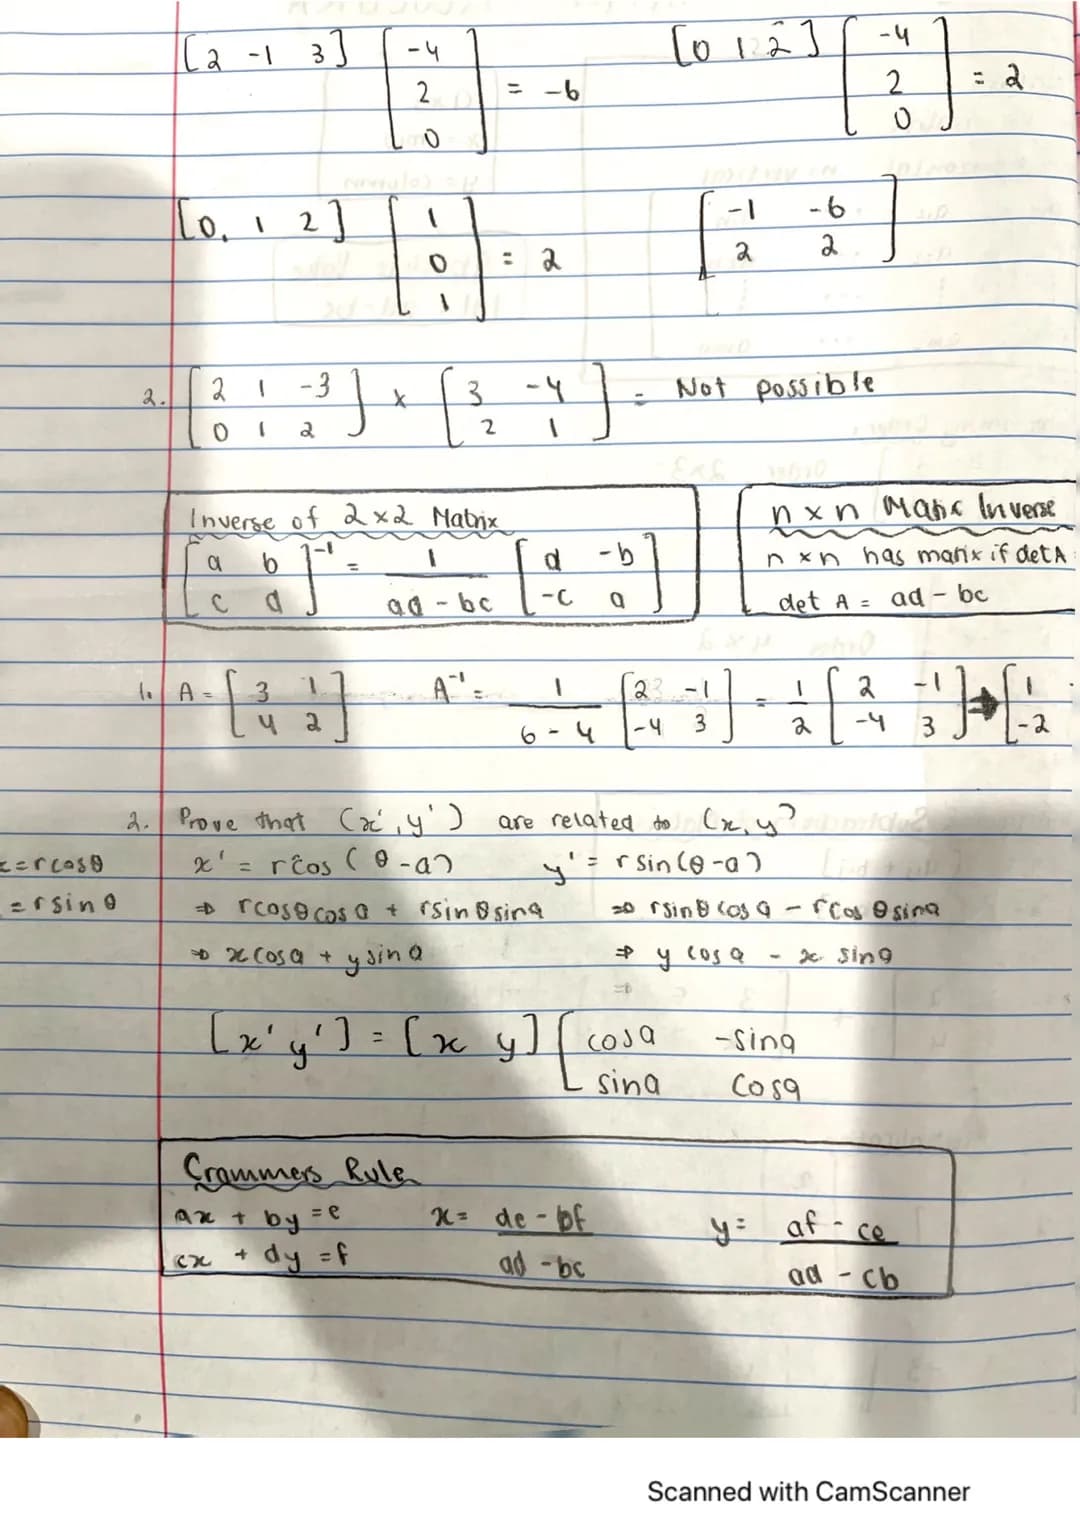 [2 -1 3] [-4 2 0] = -6    [0 1 2] [-4 2 0] = 2
[0, 1 2] [1 0 1] = 2    [-1 -6
2 2]
2. [2 1 -3
0 1 2] × [3 -4
2 1] = Not possible
Inverse of 2×2 Matrix
[a b
c d]⁻¹ = 1/(ad - bc) [d -b
-c a]
n×n Matix Inverse
n×n has marix if det A
det A = ad - bc
1. A = [3 1
4 2]  A⁻¹ = 1/(6 - 4) [2 -1
-4 3] = 1/2 [2 -1
-4 3] → [1
-2
2. Prove that (x', y') are related to (x, y)
=rcosθ  x' = rcos(θ-a)  y' = r sin(θ-a)
=rsinθ  ⇒ rcosθcosa + rsinθsina  ⇒ rsinθcosa - rcosθsina
⇒ xcosa + ysina  ⇒ y cosa - x sina
⇒
[x' y'] = [x y] [cosa -sina
sina cosa
Crammers Rule
ax + by = e    x = (de - bf)/(ad - bc)    y = (af - ce)/(ad - cb)
cx + dy = f
Scanned with CamScanner